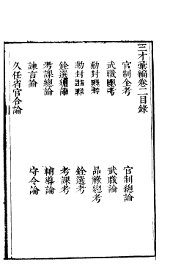 三才彙編卷二目錄
官制全考
官制總論
武職全考
武職論
勳封總考
品級總考
勳封謚考
銓選考
銓選總論
考課考
考課總論
輔導論
諫言論
守令論
久任省官合論